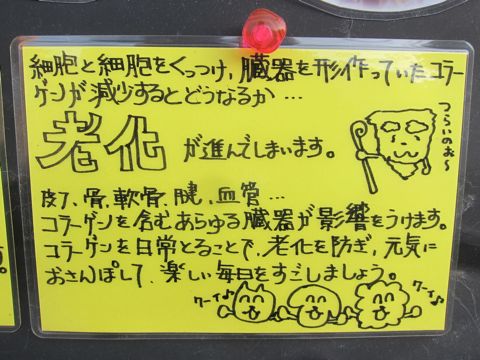 細胞と細胞をくっつけ、臓器を形作っていたコラー
ゲンが減少するとどうなるか…
老化が進んでしまいます。
つらいのぉ〜
皮下、骨、軟骨、腱、血管…
コラーゲンを含むあらゆる臓器が影響をうけます。
コラーゲンを日常とることで、老化を防ぎ、元気に
おさんぽして、楽しい毎日をすごしましょう。
クーイ♪
クーイ♪